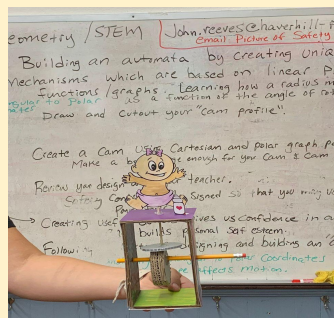 eometry / STEM
John.reeves@haverhill-
email Picture of Safety
Building an automata by creating Uniq
Mechanisms which are based on linear P
functions/graphs. Learning how a radius m
ngular to Polar as a function of the angle of rot
Draw and Cutout your "cam profile".
Create a Cam Cartesian and polar graph pa
Make a b enough for you Cam & Cam
Review your design teacher.
Safety Con Signed so that you may u
Creating usef ives us confidence in o
builds personal self esteem.
Follow. signing and building an
Coordinates
affects motion.